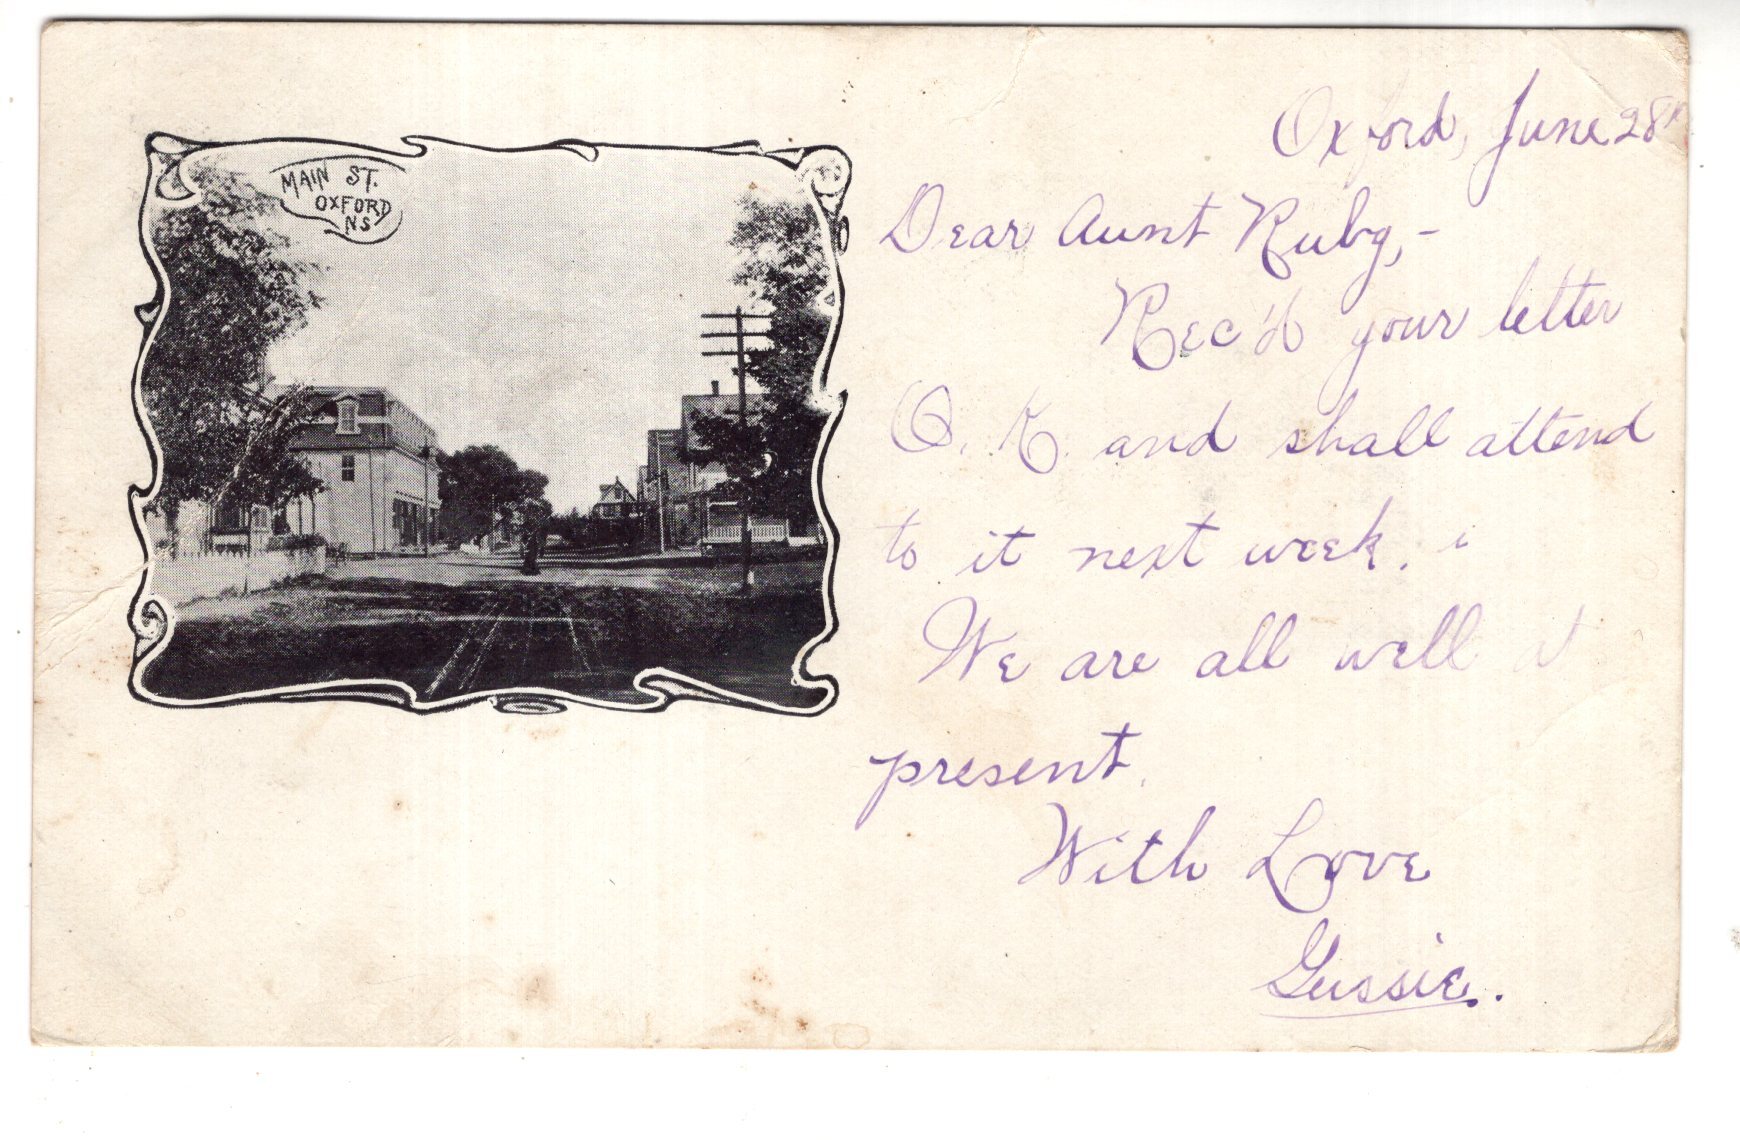 MAIN ST.
OXFORD
NS
Oxford, June 28th
Dear Aunt Ruby,-
Rec'd your letter
O. K. and shall attend
to it next week.
We are all well at
present.
With Love
Gussie.